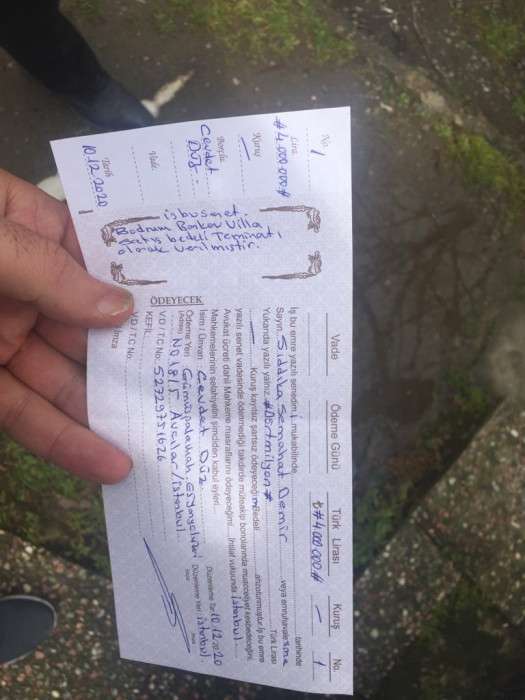 No. 1
Lira
#4.000.000#
Kuruş
—
Borçlu
Cevdet
Düz.
Vade
Tarih
10.12.2020
işbu senet.
Bodrum Bonkov Villa
satış bedeli Teminatı
olarak verilmiştir.
Vade
Ödeme Günü
Türk Lirası
Kuruş
No.
#4.000.000#
—
1
İş bu emre yazılı senedim i mukabilinde
tarihinde
Sayın, Sıddıka Semahat Demir
veya emruhavale sine
Yukarıda yazılı yalnız #Dörtmilyon#
Türk Lirası
Kuruş kayıtsız şartsız ödeyeceğim Bedeli
ahzolunmuştur. İş bu emre
yazılı senet vadesinde ödenmediği takdirde müteakip bonolarında muacceliyet kesbedeceğini,
Avukat ücreti dahil Mahkeme masraflarını ödeyeceğimi
İhtilaf vukuunda istanbul
Mahkemelerinin selahiyetini şimdiden kabul eylerim
ÖDEYECEK
İsim / Ünvan: Cevdet Düz
Düzenleme Tar. 10.12.2020
Ödeme Yeri
(Adresi)
Gümüşpala mah.
Düzenleme Yeri: istanbul
İmza
No: 18/5 Avcılar/istanbul
V.D / T.C No. 52729751626
KEFİL
V.D / T.C No.
İmza